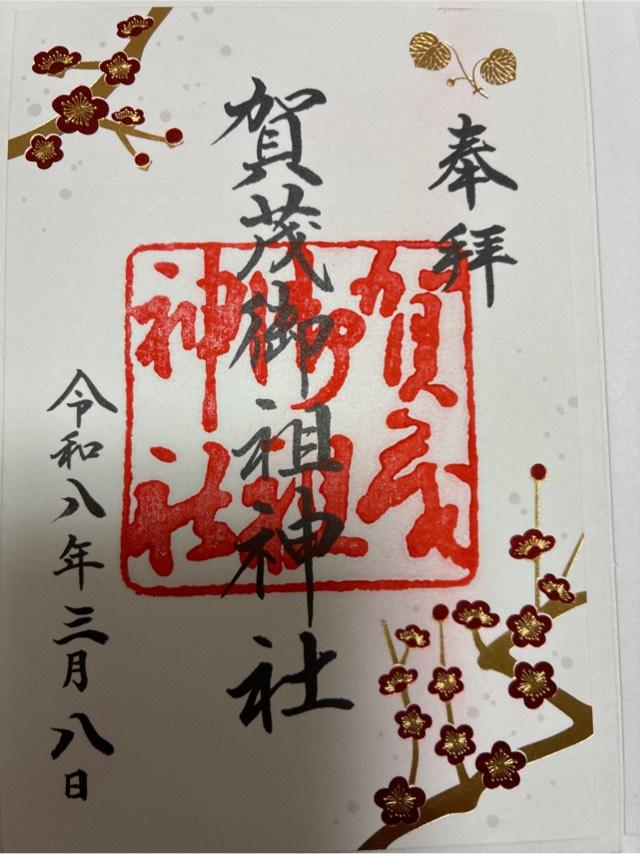 奉拝
賀茂御祖神社
賀茂
御祖
神社
令和八年三月八日